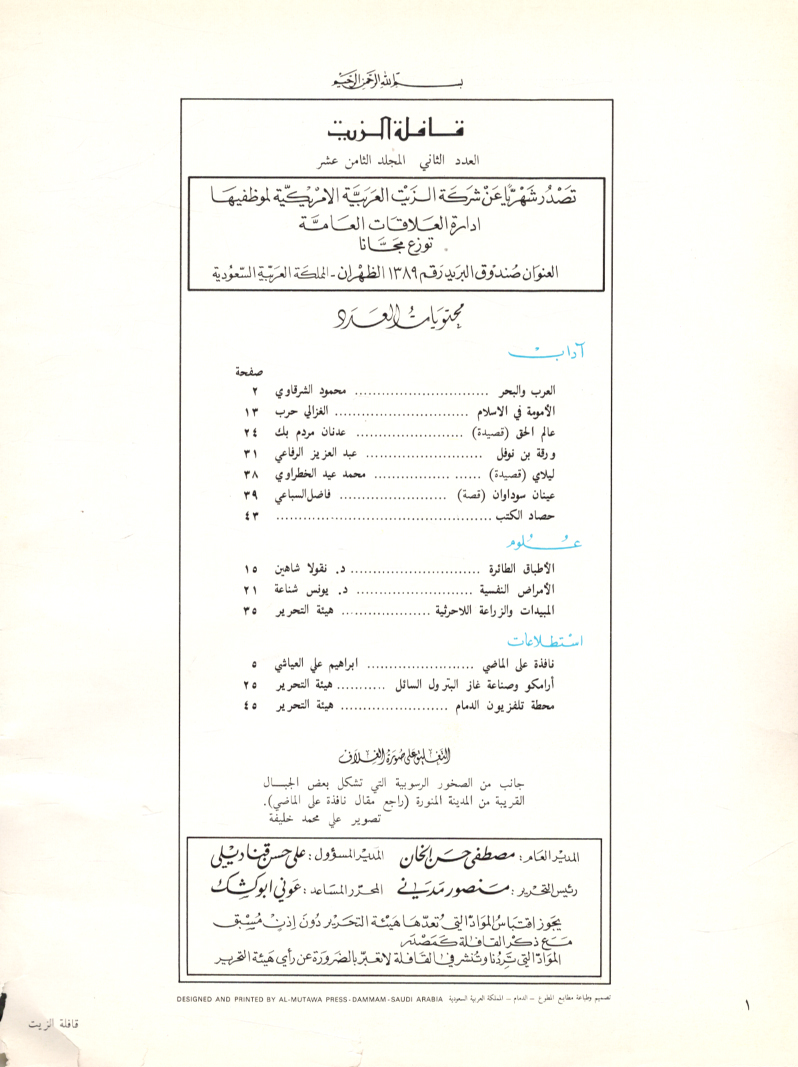 بسم الله الرحمن الرحيم
قافلة الزيت
العدد الثاني المجلد الثامن عشر
تصدر شهريًا عن شركة الزيت العربية الامريكية لموظفيها
ادارة العلاقات العامة
توزع مجانا
العنوان صندوق البريد رقم ١٣٨٩ الظهران - المملكة العربية السعودية
محتويات العدد
آداب
صفحة
العرب والبحر .............................. محمود الشرقاوي ٢
الأمومة في الاسلام .............................. الغزالي حرب ١٣
عالم الحق (قصيدة) ........................ عدنان مردم بك ٢٤
ورقة بن نوفل .......................... عبد العزيز الرفاعي ٣١
ليلاي (قصيدة) ...... ................. محمد عيد الخطراوي ٣٨
عينان سوداوان (قصة) ........................ فاضل السباعي ٣٩
حصاد الكتب ................................................ ٤٣
علوم
الأطباق الطائرة ............................. د. نقولا شاهين ١٥
الأمراض النفسية .......................... د. يونس شناعة ٢١
المبيدات والزراعة اللاحرثية .................... هيئة التحرير ٣٥
استطلاعات
نافذة على الماضي ........................ ابراهيم علي العياشي ٥
أرامكو وصناعة غاز البترول السائل ........... هيئة التحرير ٢٥
محطة تلفزيون الدمام ........................ هيئة التحرير ٤٥
التعليق على صورة الغلاف
جانب من الصخور الرسوبية التي تشكل بعض الجبال
القريبة من المدينة المنورة (راجع مقال نافذة على الماضي).
تصوير علي محمد خليفة
المدير العام: مصطفى حسن الخان المدير المسؤول: علي حسن قناديلي
رئيس التحرير: منصور مدني المحرر المساعد: عوني ابو كشك
يجوز اقتباس المواد التي تعدها هيئة التحرير دون إذن مسبق
مع ذكر القافلة كمصدر
المواد التي تردنا وتنشر في القافلة لا تعبر بالضرورة عن رأي هيئة التحرير
DESIGNED AND PRINTED BY AL-MUTAWA PRESS-DAMMAM-SAUDI ARABIA تصميم وطباعة مطابع المطوع – الدمام – المملكة العربية السعودية
١
قافلة الزيت